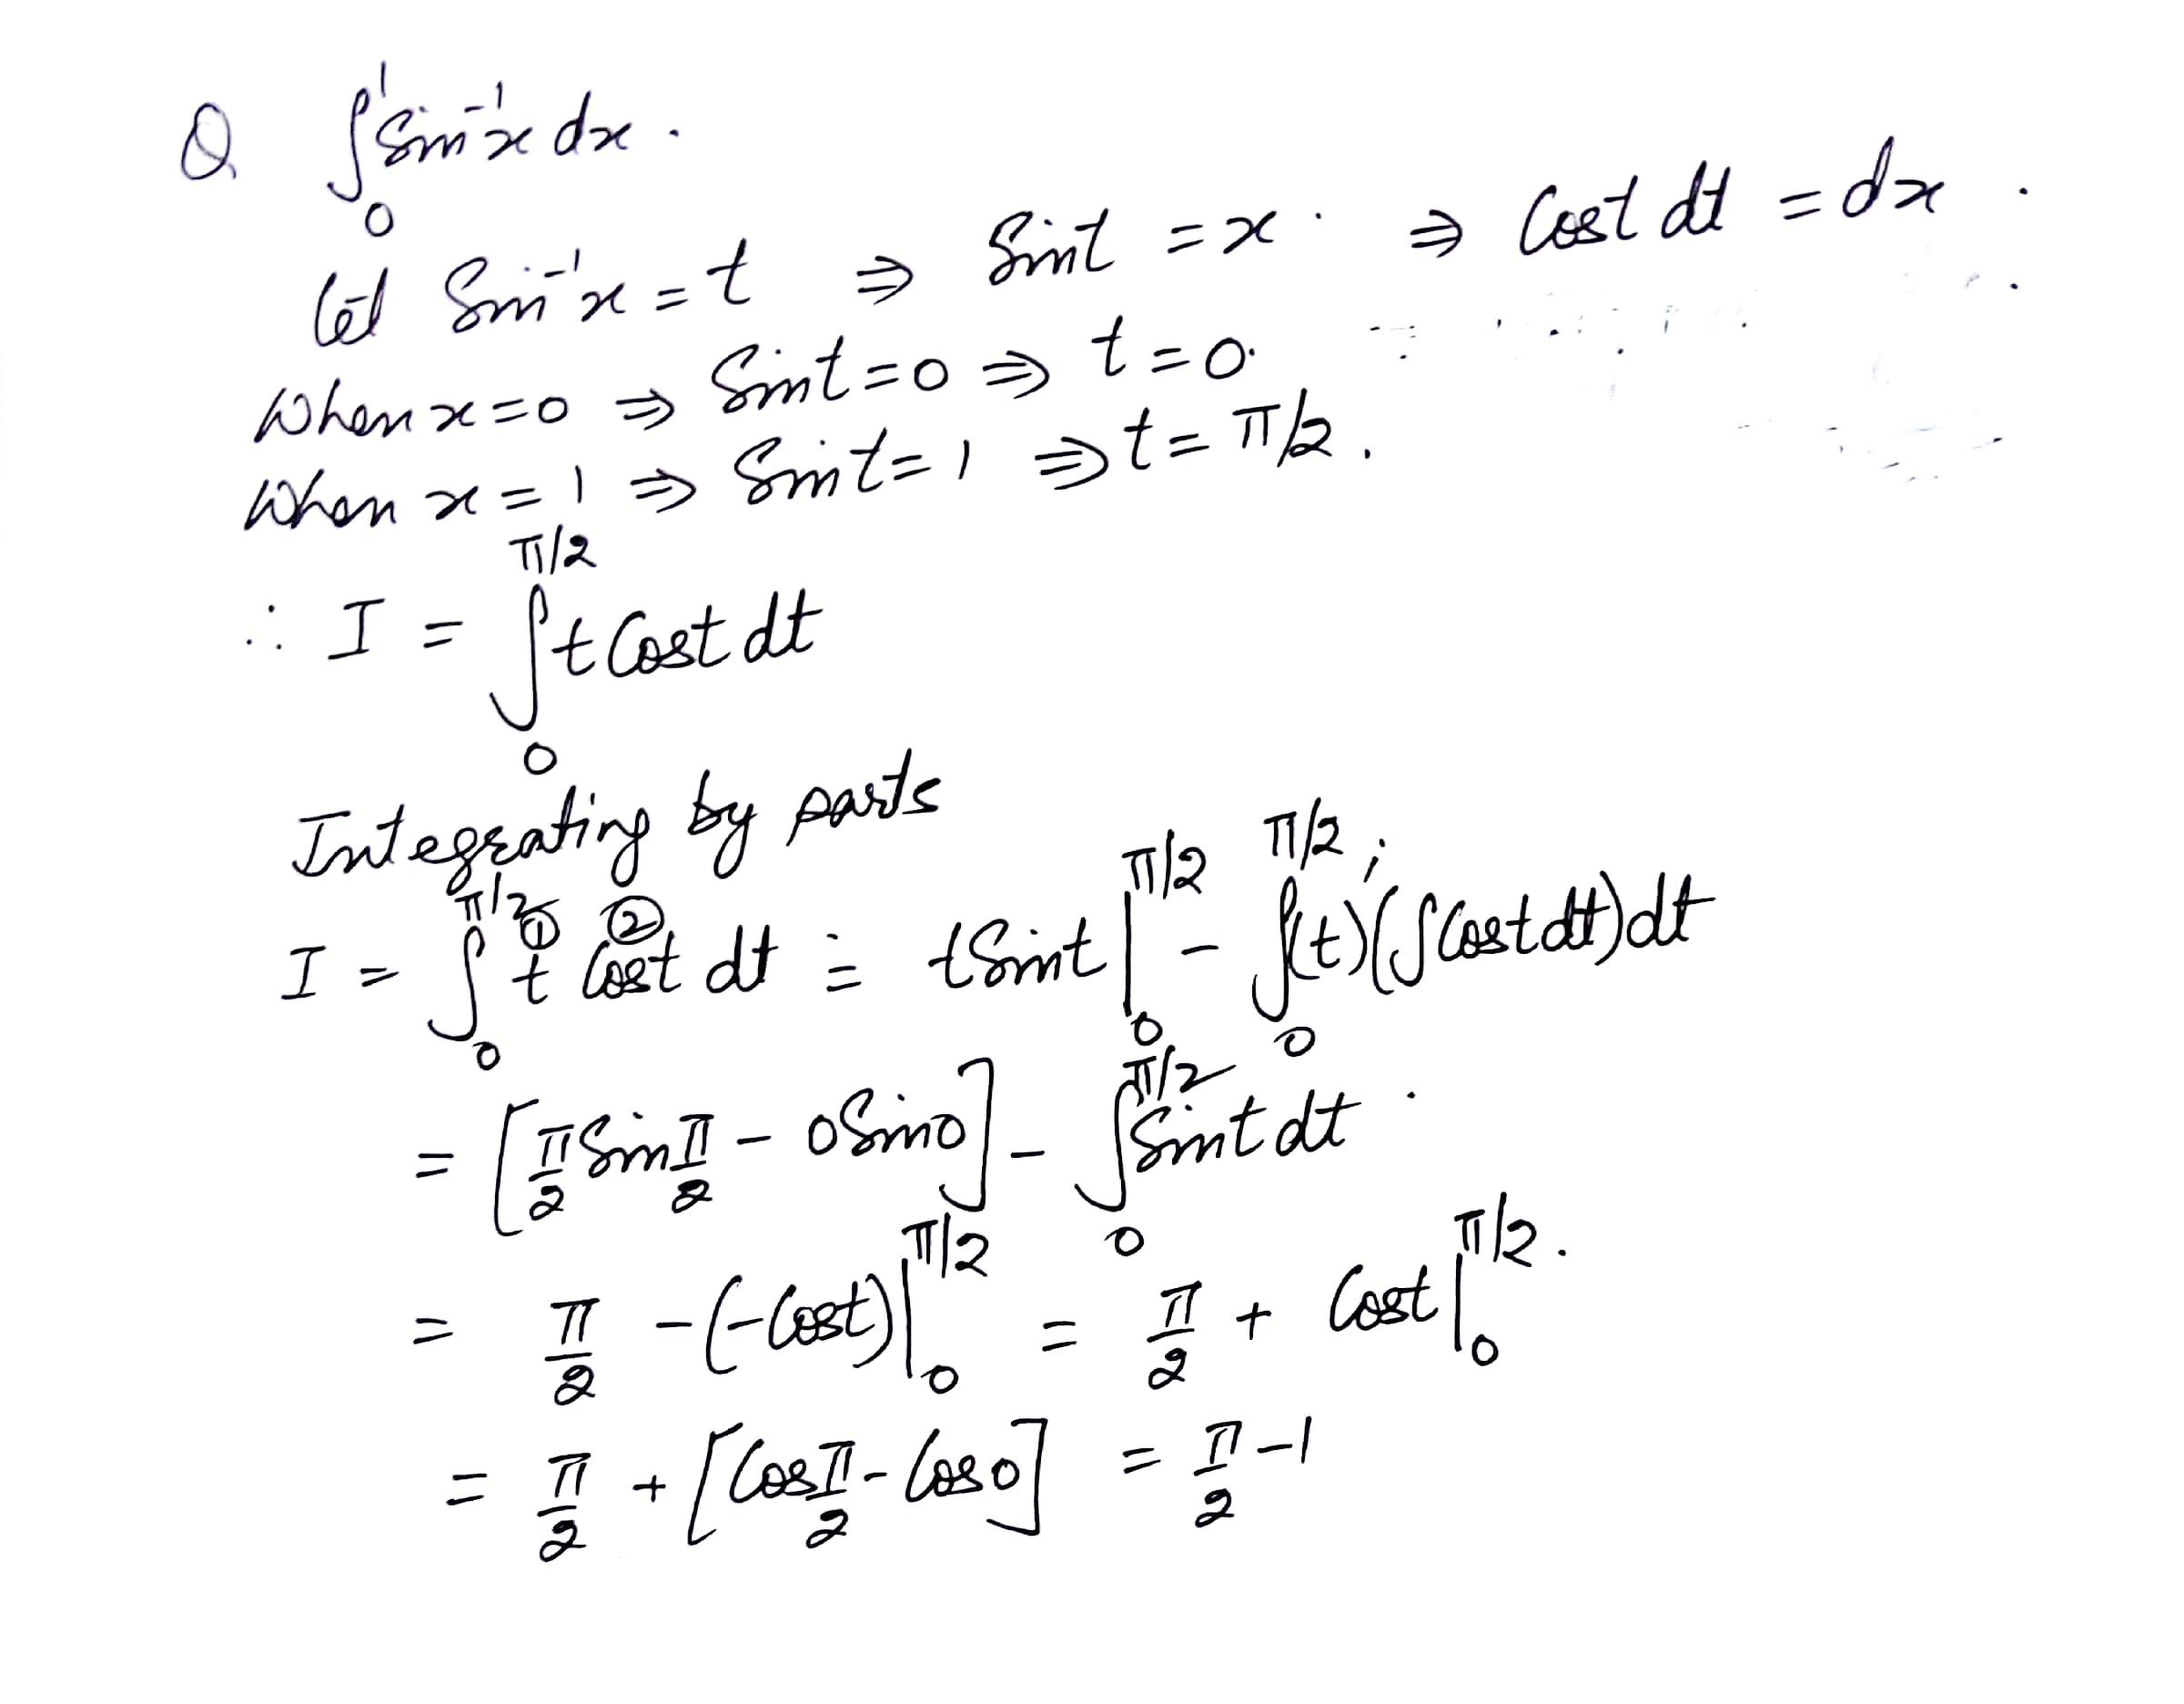 Q ∫₀¹ Sin⁻¹x dx.
Let Sin⁻¹x = t ⇒ Sint = x. ⇒ Cost dt = dx.
When x = 0 ⇒ Sint = 0 ⇒ t = 0.
When x = 1 ⇒ Sint = 1 ⇒ t = π/2.
∴ I = ∫₀^{π/2} t Cost dt
Integrating by parts
I = ∫₀^{π/2} t① Cost② dt = tSint |₀^{π/2} - ∫₀^{π/2} (t)' (∫Cost dt) dt
= [π/2 Sin π/2 - 0Sin0] - ∫₀^{π/2} Sint dt.
= π/2 - (-Cost) |₀^{π/2} = π/2 + Cost |₀^{π/2}.
= π/2 + [Cos π/2 - Cos 0] = π/2 - 1